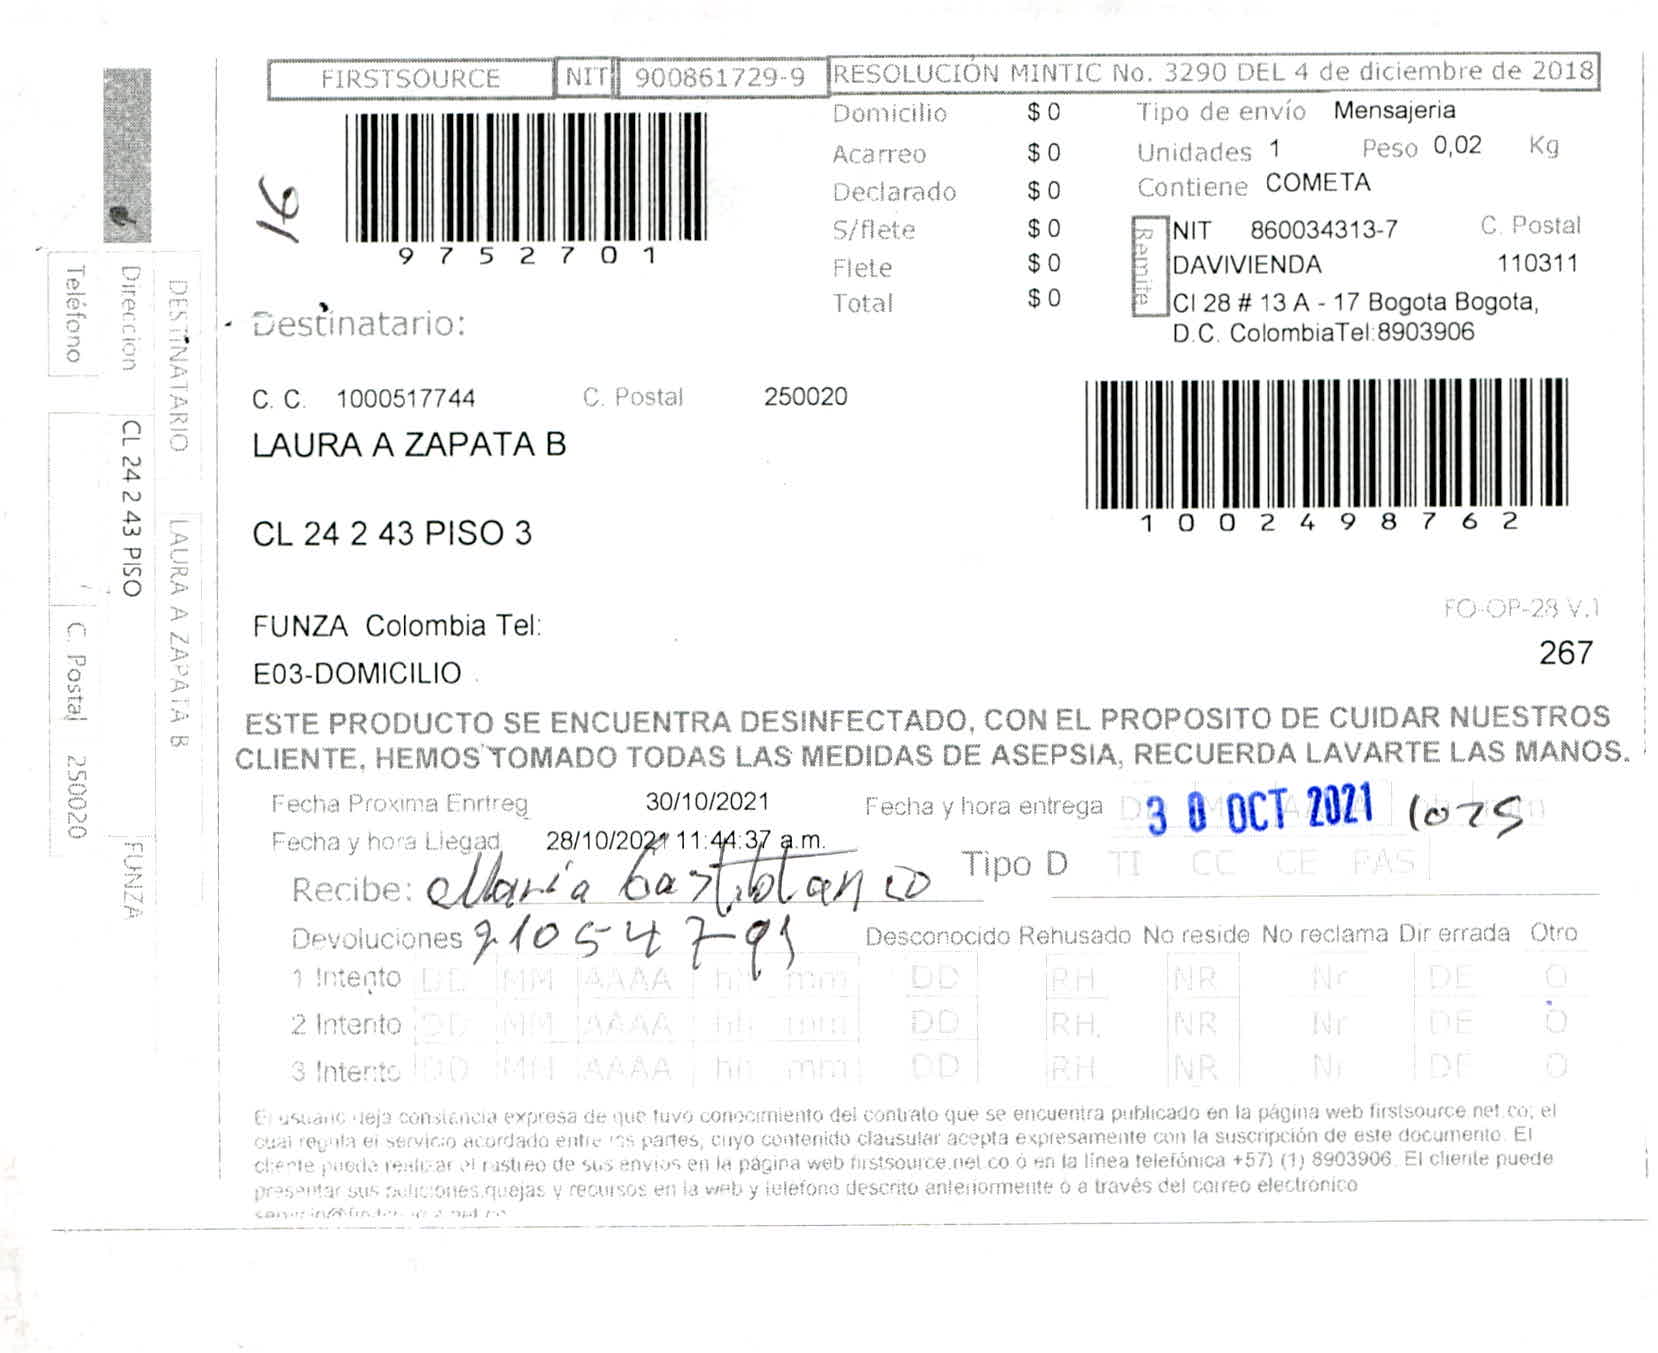 FIRSTSOURCE NIT 900861729-9 RESOLUCIÓN MINTIC No. 3290 DEL 4 de diciembre de 2018
16
9752701
Domicilio $ 0
Acarreo $ 0
Declarado $ 0
S/flete $ 0
Flete $ 0
Total $ 0
Tipo de envío Mensajeria
Unidades 1 Peso 0,02 Kg
Contiene COMETA
Remite
NIT 860034313-7 C. Postal
DAVIVIENDA 110311
Cl 28 # 13 A - 17 Bogota Bogota,
D.C. ColombiaTel:8903906
1002498762
Destinatario:
C. C. 1000517744 C. Postal 250020
LAURA A ZAPATA B
CL 24 2 43 PISO 3
FUNZA Colombia Tel:
E03-DOMICILIO
FO-OP-28 V.1
267
DESTINATARIO LAURA A ZAPATA B
Direccion CL 24 2 43 PISO FUNZA
Teléfono C. Postal 250020
ESTE PRODUCTO SE ENCUENTRA DESINFECTADO, CON EL PROPOSITO DE CUIDAR NUESTROS
CLIENTE, HEMOS TOMADO TODAS LAS MEDIDAS DE ASEPSIA, RECUERDA LAVARTE LAS MANOS.
Fecha Proxima Enrtreg 30/10/2021 Fecha y hora entrega 30 OCT 2021 1025
Fecha y hora Llegad 28/10/2021 11:44:37 a.m.
Recibe: Maria Tipo D TI CC CE PAS
Devoluciones Desconocido Rehusado No reside No reclama Dir errada Otro
1 Intento DD MM AAAA hh mm DD RH NR Nr DE O
2 Intento DD MM AAAA hh mm DD RH NR Nr DE O
3 Intento DD MM AAAA hh mm DD RH NR Nr DE O
El usuario deja constancia expresa de que tuvo conocimiento del contrato que se encuentra publicado en la página web firstsource.net.co, el
cual regula el servicio acordado entre las partes, cuyo contenido clausular acepta expresamente con la suscripción de este documento. El
cliente puede realizar el rastreo de sus envios en la página web firstsource.net.co o en la línea telefónica +57) (1) 8903906. El cliente puede
presentar sus peticiones,quejas y recursos en la web y telefono descrito anteriormente o a través del correo electronico